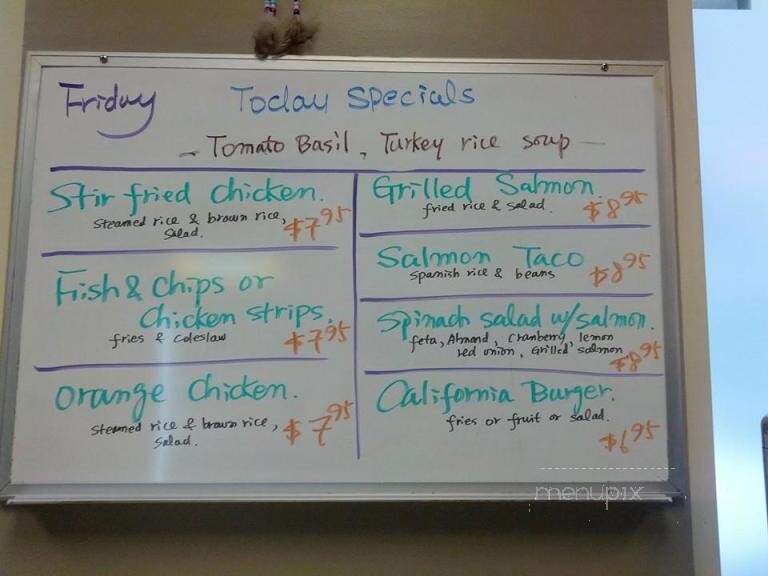 Friday Today Specials
- Tomato Basil, Turkey rice soup -
Stir fried chicken.
steamed rice & brown rice,
salad.
$7.95
Fish & chips or
chicken strips.
fries & coleslaw
$7.95
Orange Chicken.
steamed rice & brown rice,
salad.
$7.95
Grilled Salmon.
fried rice & salad.
$8.95
Salmon Taco
spanish rice & beans
$8.95
Spinach salad w/salmon.
feta, Almond, cranberry, lemon
red onion, Grilled salmon
$8.95
California Burger.
fries or fruit or salad.
$6.95
menupix